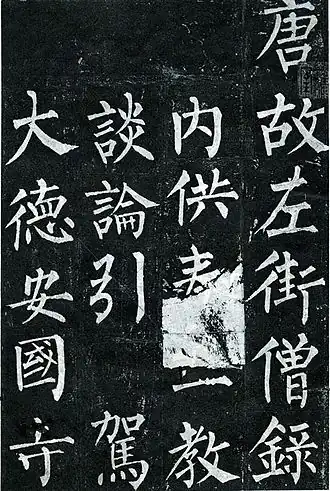 唐故左街僧錄
內供奉教
談論引駕
大徳安國寺